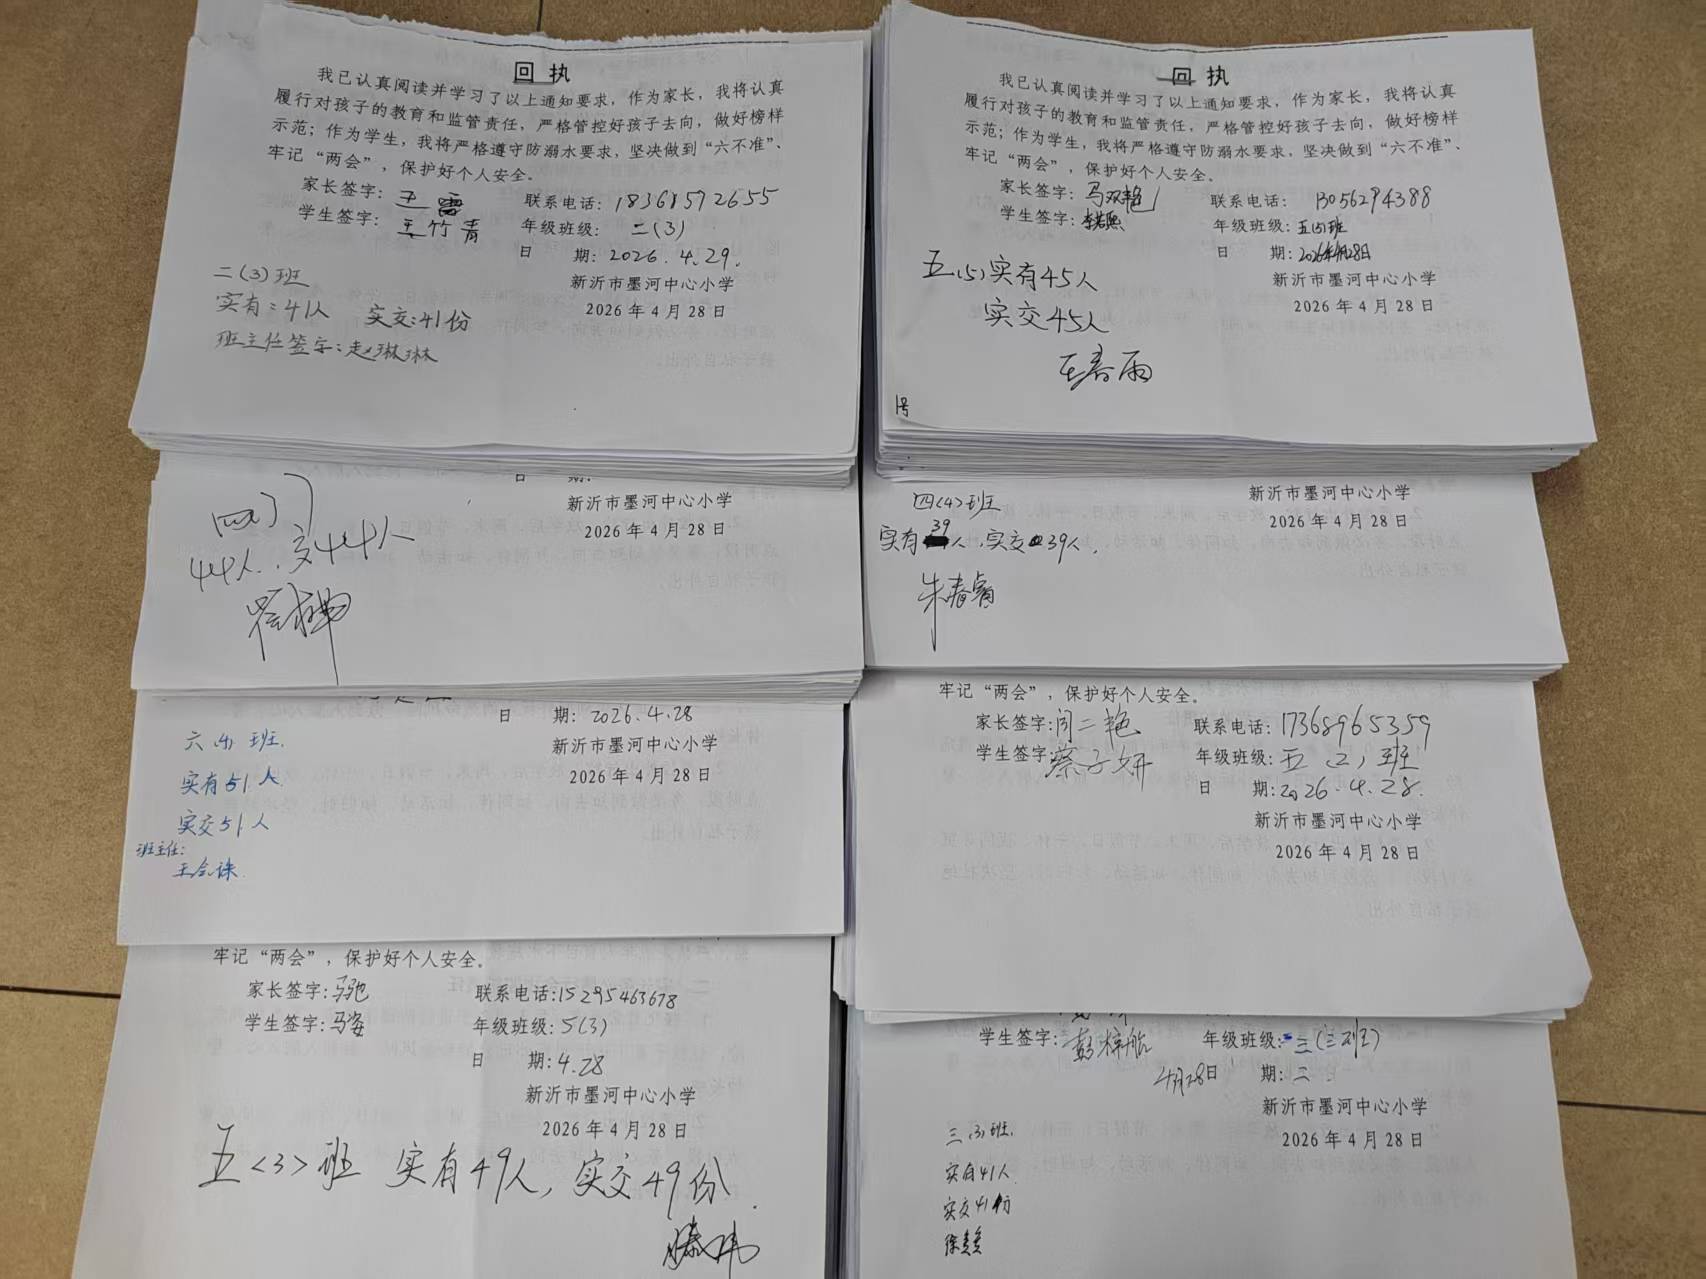 回 执
我已认真阅读并学习了以上通知要求，作为家长，我将认真
履行对孩子的教育和监管责任，严格管控好孩子去向，做好榜样
示范；作为学生，我将严格遵守防溺水要求，坚决做到“六不准”、
牢记“两会”，保护好个人安全。
家长签字：王雷 联系电话：18361572655
学生签字：王竹青 年级班级：二（3）
日 期：2026.4.29.
二（3）班
新沂市墨河中心小学
实有：41人 实交：41份
2026年4月28日
班主任签字：赵琳琳
回 执
我已认真阅读并学习了以上通知要求，作为家长，我将认真
履行对孩子的教育和监管责任，严格管控好孩子去向，做好榜样
示范；作为学生，我将严格遵守防溺水要求，坚决做到“六不准”、
牢记“两会”，保护好个人安全。
家长签字：马双艳 联系电话：13056294388
学生签字：李若熙 年级班级：五（5）班
日 期：2026年4月28日
五（5）实有45人
新沂市墨河中心小学
实交45人
2026年4月28日
王春雨
1号
日 期：
新沂市墨河中心小学
2026年4月28日
44人，交44人
四（4）班
新沂市墨河中心小学
实有39人，实交39人，
2026年4月28日
朱春睿
日 期：2026.4.28
新沂市墨河中心小学
2026年4月28日
班
实有51人
实交51人
班主任：
牢记“两会”，保护好个人安全。
家长签字：闫二艳 联系电话：17368965359
学生签字：蔡子妍 年级班级：五（2）班
日 期：2026.4.28.
新沂市墨河中心小学
2026年4月28日
牢记“两会”，保护好个人安全。
家长签字：马驰 联系电话：15295463678
学生签字：马姿 年级班级：5（3）
日 期：4.28
新沂市墨河中心小学
2026年4月28日
五<3>班 实有49人，实交49份.
滕玮
学生签字：彭梓航 年级班级：三（三班）
4月28日 期：二
新沂市墨河中心小学
三（3）班.
2026年4月28日
实有41人
实交41份